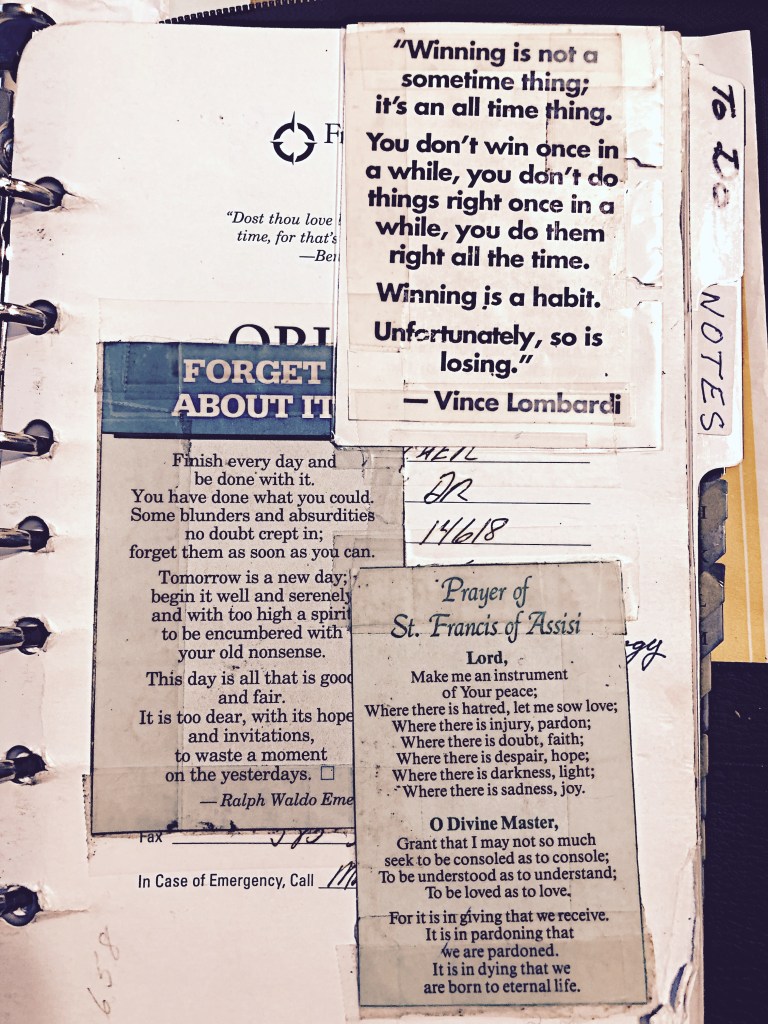 "Winning is not a
sometime thing;
it's an all time thing.
You don't win once in
a while, you don't do
things right once in a
while, you do them
right all the time.
Winning is a habit.
Unfortunately, so is
losing."
— Vince Lombardi
TO DO
NOTES
"Dost thou love
time, for that's
FORGET
ABOUT IT
Finish every day and
be done with it.
You have done what you could.
Some blunders and absurdities
no doubt crept in;
forget them as soon as you can.
Tomorrow is a new day;
begin it well and serenely
and with too high a spirit
to be encumbered with
your old nonsense.
This day is all that is good
and fair.
It is too dear, with its hope
and invitations,
to waste a moment
on the yesterdays. □
— Ralph Waldo Eme
DR
14618
Prayer of
St. Francis of Assisi
Lord,
Make me an instrument
of Your peace;
Where there is hatred, let me sow love;
Where there is injury, pardon;
Where there is doubt, faith;
Where there is despair, hope;
Where there is darkness, light;
Where there is sadness, joy.
O Divine Master,
Grant that I may not so much
seek to be consoled as to console;
To be understood as to understand;
To be loved as to love.
For it is in giving that we receive.
It is in pardoning that
we are pardoned.
It is in dying that we
are born to eternal life.
Fax
In Case of Emergency, Call
658